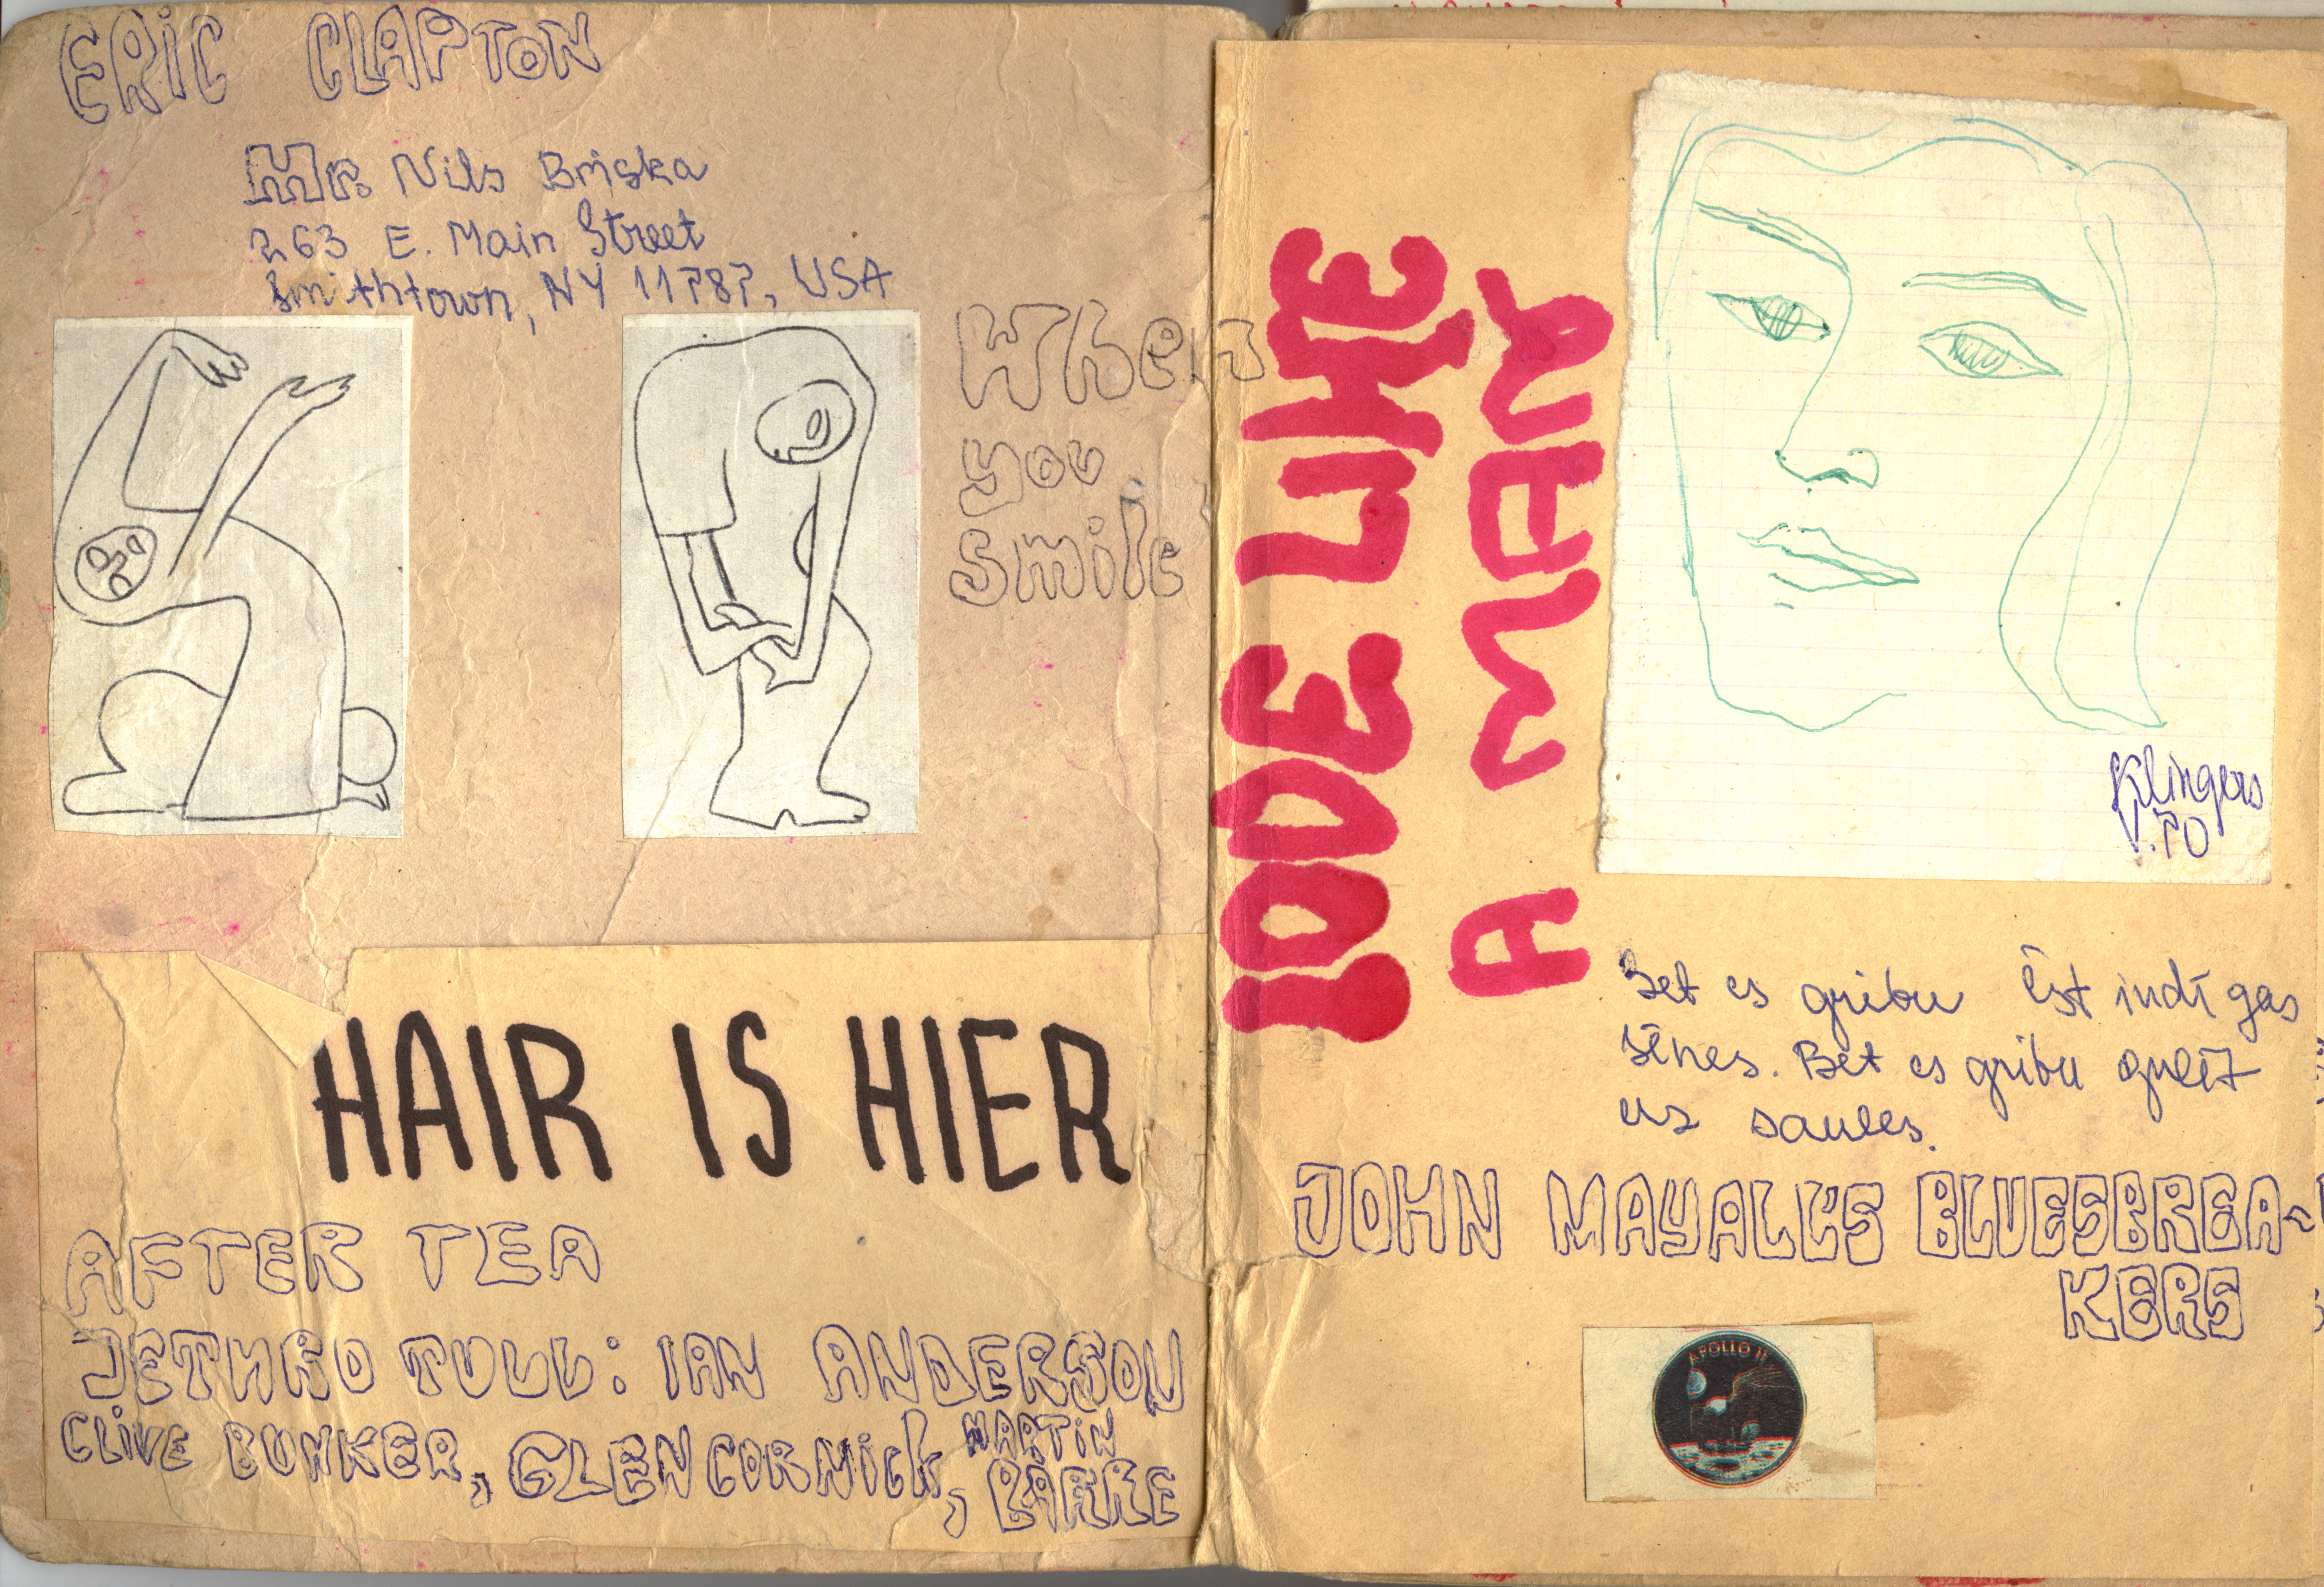 ERIC CLAPTON
Mr. Nils Briska
263 E. Main Street
Smithtown, NY 11787, USA
When
you
smile
HAIR IS HIER
AFTER TEA
JETHRO TULL: IAN ANDERSON
CLIVE BUNKER, GLEN CORNICK, MARTIN
BARRE
LIKE
A MAN
Klingers
V.70
Bet es gribu ēst indīgas
sēnes. Bet es gribu gulēt
uz saules.
JOHN MAYALL'S BLUESBREA-
KERS
APOLLO 11